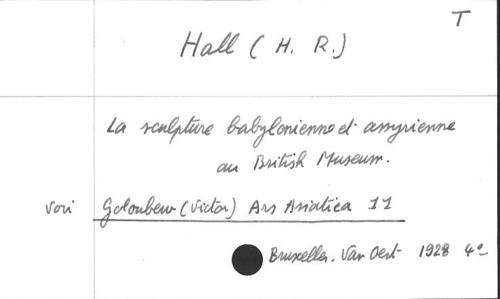 T
Hall (H. R.)
La sculpture babylonienne et assyrienne
au British Museum.
voir Goloubew (Victor) Ars Asiatica 11
Bruxelles. Van Oest 1928 4°